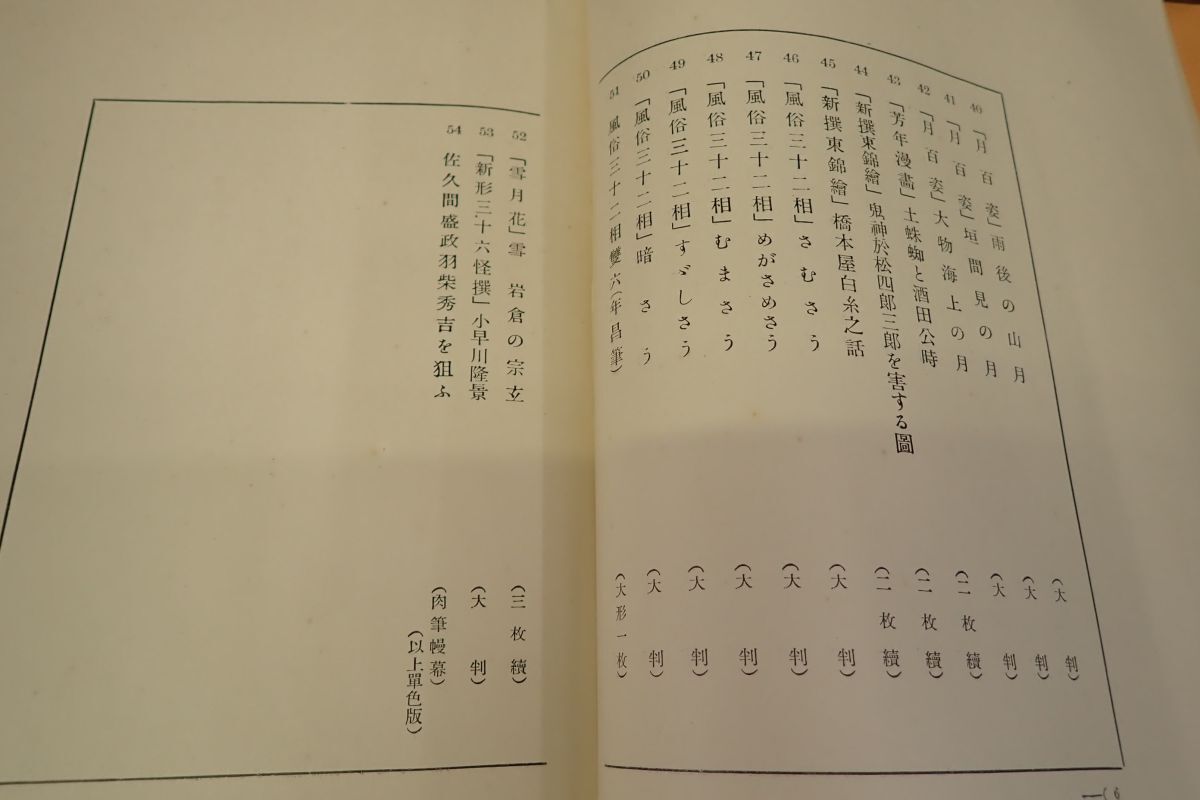 40 「月百姿」雨後の山月 (大判)
41 「月百姿」垣間見の月 (大判)
42 「月百姿」大物海上の月 (大判)
43 「芳年漫畵」土蛛蜘と酒田公時 (二枚續)
44 「新撰東錦繪」鬼神於松四郎三郎を害する圖 (二枚續)
45 「新撰東錦繪」橋本屋白糸之話 (二枚續)
46 「風俗三十二相」さむさう (大判)
47 「風俗三十二相」めがさめさう (大判)
48 「風俗三十二相」むまさう (大判)
49 「風俗三十二相」すゞしさう (大判)
50 「風俗三十二相」暗さう (大判)
51 風俗三十二相雙六(年昌筆) (大形一枚)
52 「雪月花」雪 岩倉の宗玄 (三枚續)
53 「新形三十六怪撰」小早川隆景 (大判)
54 佐久間盛政羽柴秀吉を狙ふ (肉筆幔幕)
(以上單色版)